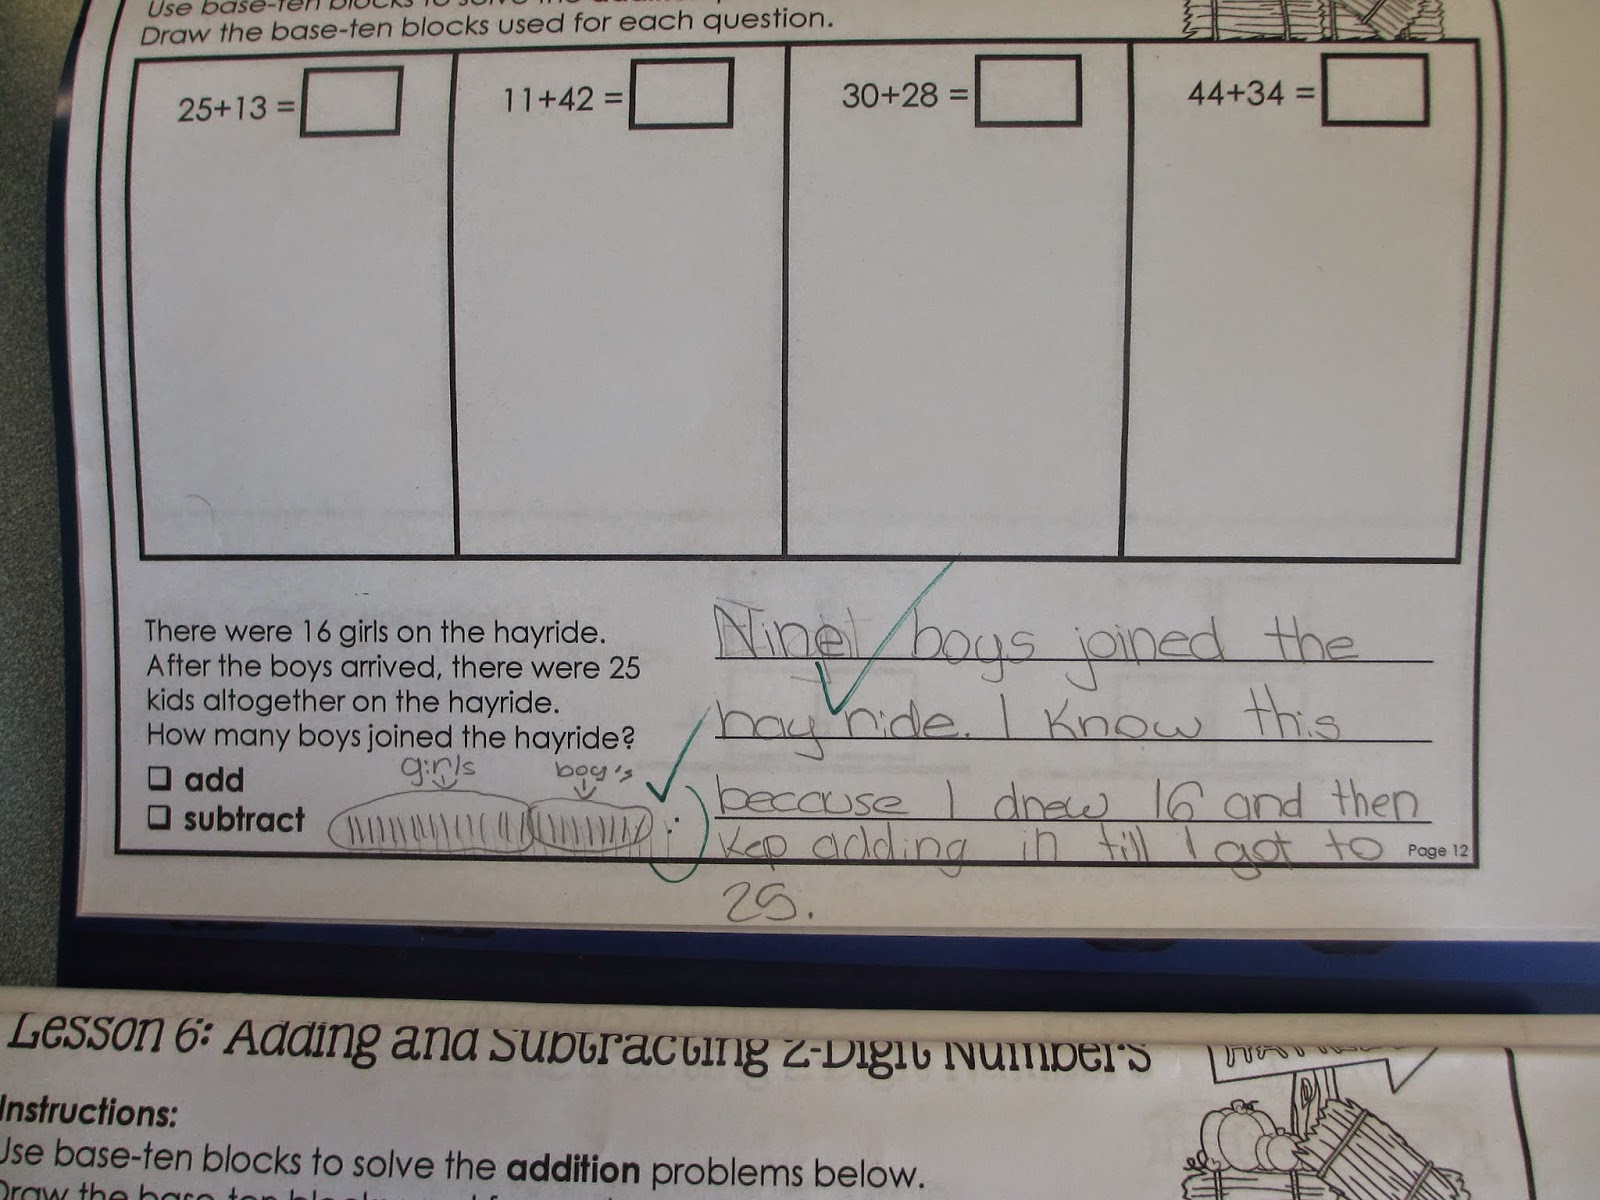 Use base-ten blocks to solve the addition
Draw the base-ten blocks used for each question.
25+13 =
11+42 =
30+28 =
44+34 =
There were 16 girls on the hayride.
After the boys arrived, there were 25
kids altogether on the hayride.
How many boys joined the hayride?
add
subtract
girls
boy's
boys joined the
hay ride. I know this
because I drew 16 and then
kep adding in till I got to
25.
Page 12
Lesson 6: Adding and Subtracting 2-Digit Numbers
Instructions:
Use base-ten blocks to solve the addition problems below.
Draw the base-ten blocks used for